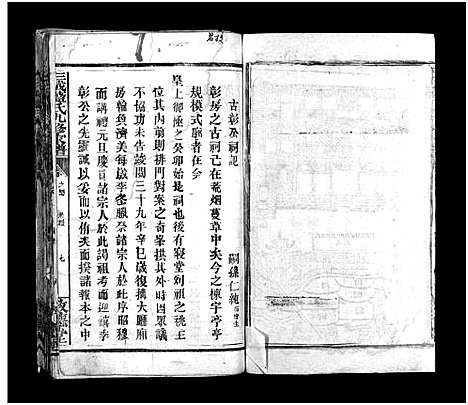 古彰公祠記
嗣孫仁純
彰房之古祠已在荒烟蔓草中矣今之棟宇亭亭
規模式廓者在今
皇上御極之癸卯始是祠也有寢堂列祖之祧主
位其內前則排門對案之奇峯拱其外時因眾議
不協功未告竣閱三十九年辛巳歲復搆大廳廟
房輪奐濟美每歲季冬臘祭諸宗人於此序昭穆
而講禮元旦慶首諸宗人於此謁祖考而迎禧季
彰公之先靈誠以妥而以侑矣而揆諸報本之中
三
盧氏九修宗譜
七
敦